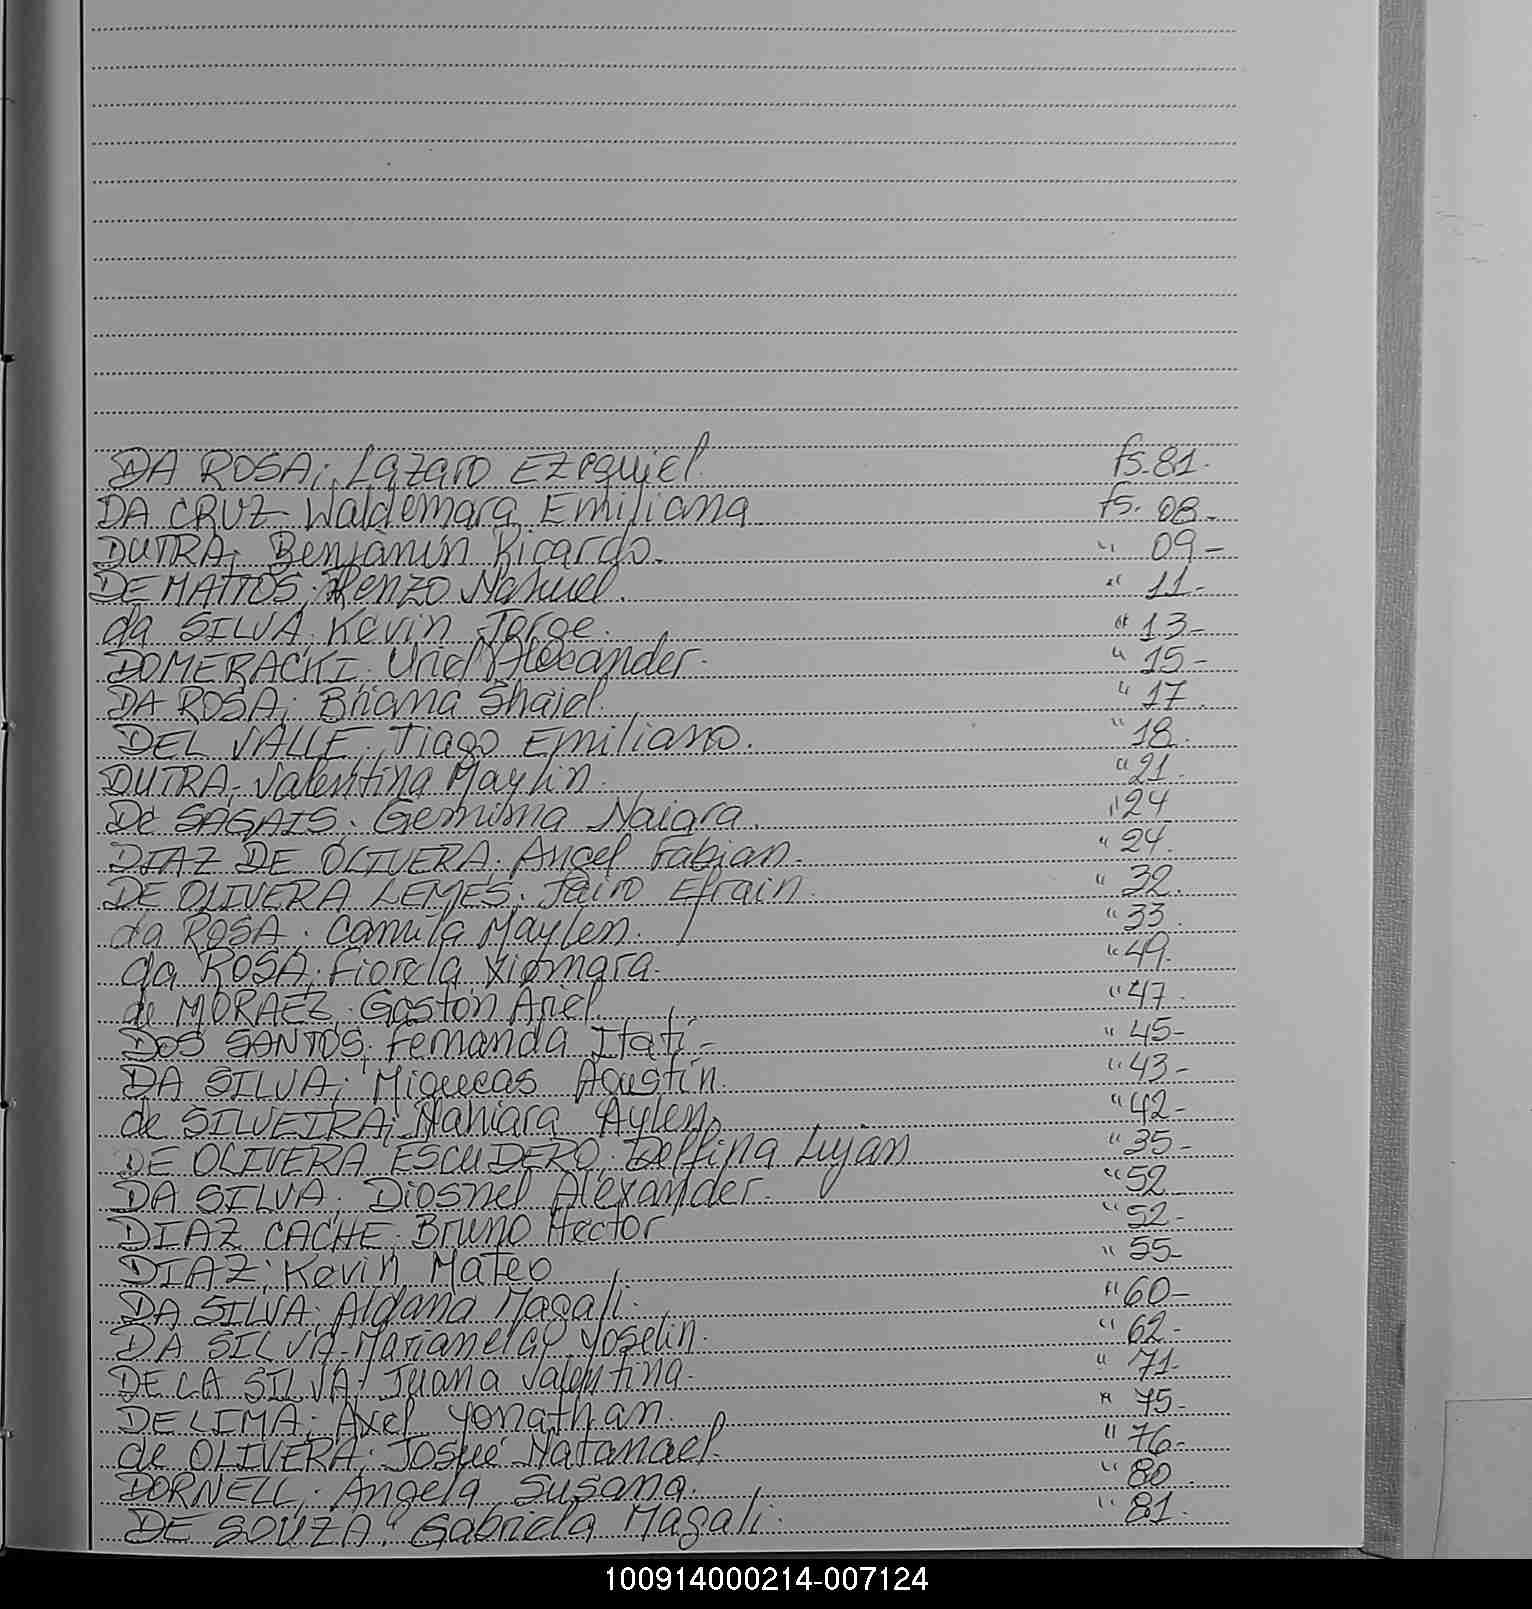 DA ROSA; Lazaro Ezequiel. fs. 81.
DA CRUZ Waldemara Emiliana fs. 08-
DUTRA; Benjamín Ricardo. " 09-
DE MATTOS; Renzo Nahuel. " 11-
da SILVA. Kevin Jorge. " 13-
DOMERACKI. Uriel Alexander. " 15-
DA ROSA; Briana Shaiel. " 17.
DEL VALLE; Tiago Emiliano. " 18.
DUTRA, Valentina Maylin. " 21.
De SAGAIS. Gemima Naiara. " 24
DIAZ DE OLIVERA. Angel Fabian. " 24.
DE OLIVERA LEMES. Jairo Efrain. " 32.
da ROSA. Camila Maylen. " 33.
da ROSA; Fiorela Xiomara. " 49.
de MORAEZ. Gastón Ariel. " 47.
DOS SANTOS; Fernanda Itatí- " 45-
DA SILVA; Miqueas Agustín. " 43-
de SILVEIRA; Nahiara Aylen. " 42-
DE OLIVERA ESCUDERO; Delfina Luján " 35-
DA SILVA. Diosnel Alexander. " 52
DIAZ CACHE. Bruno Hector " 52-
DIAZ; Kevin Mateo " 55-
DA SILVA; Aldana Magali. " 60-
DA SILVA-Marianela Yoselin. " 62-
DE LA SILVA; Juana Valentina. " 71-
DE LIMA; Axel Yonathan. " 75-
de OLIVERA; Josué Natanael. " 76-
DORNELL; Angela Susana. " 80.
DE SOUZA. Gabriela Magali. " 81.
100914000214-007124